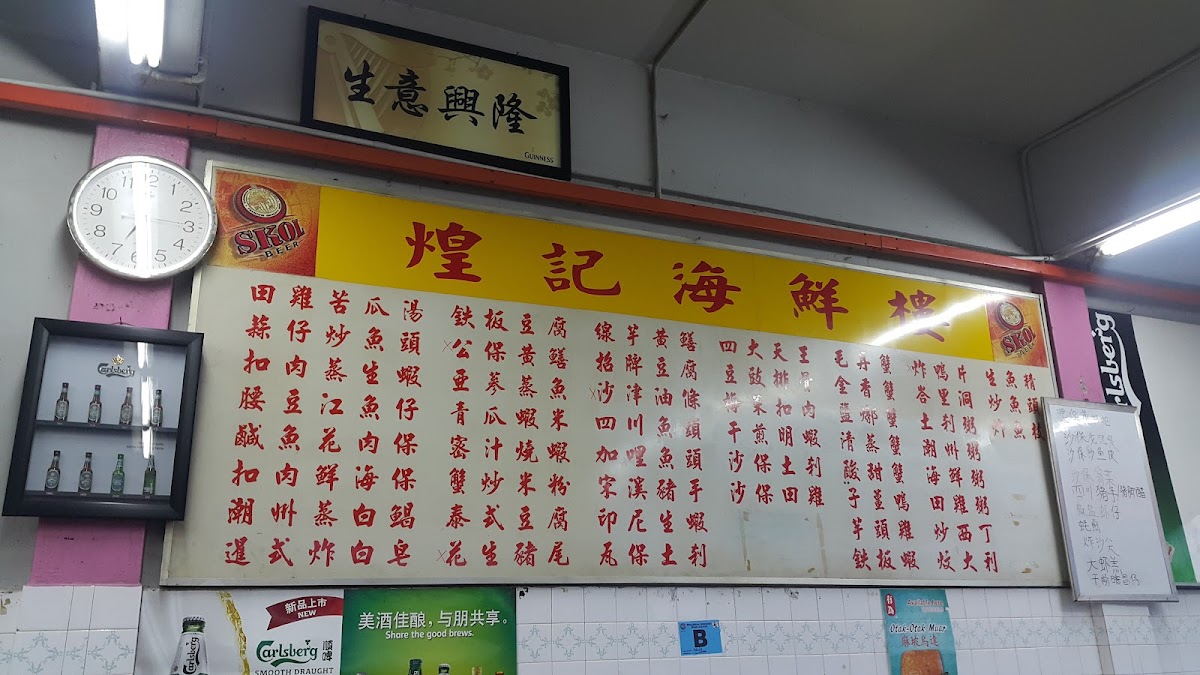 生意興隆
GUINNESS
SKOL
BEER
煌記海鮮樓
SKOL
田雞苦瓜湯
蒜仔炒魚頭
扣肉蒸生蝦
腰豆江魚仔
鹹魚花肉保
扣肉鮮海保
潮州蒸白鯧
暹式炸白皂
鉄板豆腐
公保黃鱔
亚蔘蒸魚
青瓜蝦米
密汁燒蝦
蟹炒米粉
泰式豆腐
花生豬尾
線芋黃鱔
招牌豆腐
沙津油條
四川魚頭
加哩魚頭
宋溪豬手
印尼生蝦
瓦保土利
四大天王
豆豉排骨
梅菜扣肉
干煎明蝦
沙保土利
沙保田雞
毛丹蟹
金香蟹
鹽焗蟹
清蒸蟹
酸甜蟹
子薑鴨
芋頭雞
鉄板蝦
炸鴨片
峇里洞
土利粥
潮州粥
海鮮粥
田雞粥
炒西丁
炆大利
12
1
2
3
4
5
6
7
8
9
10
11
Carlsberg
Carlsberg
四川豬手
炸沙尖
新品上市
NEW
Carlsberg
順啤
SMOOTH DRAUGHT
美酒佳酿，与朋共享。
Share the good brews.
B
有為
Otak-Otak Muar
麻坡烏達